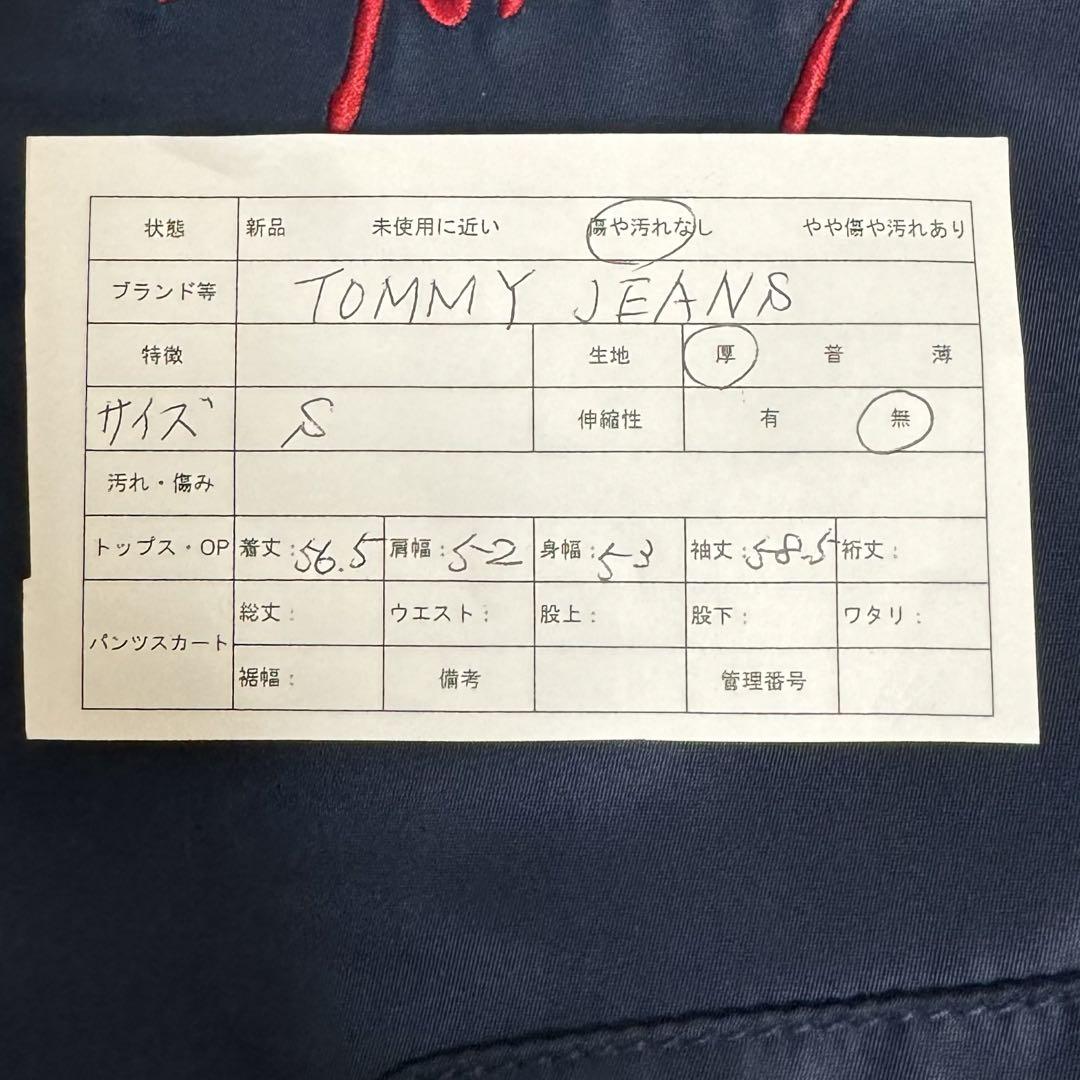 状態 新品 未使用に近い 傷や汚れなし やや傷や汚れあり
ブランド等 TOMMY JEANS
特徴 生地 厚 普 薄
サイズ S 伸縮性 有 無
汚れ・傷み
トップス・OP 着丈:56.5 肩幅:52 身幅:53 袖丈:58.5 裄丈:
パンツスカート 総丈: ウエスト: 股上: 股下: ワタリ:
裾幅: 備考 管理番号